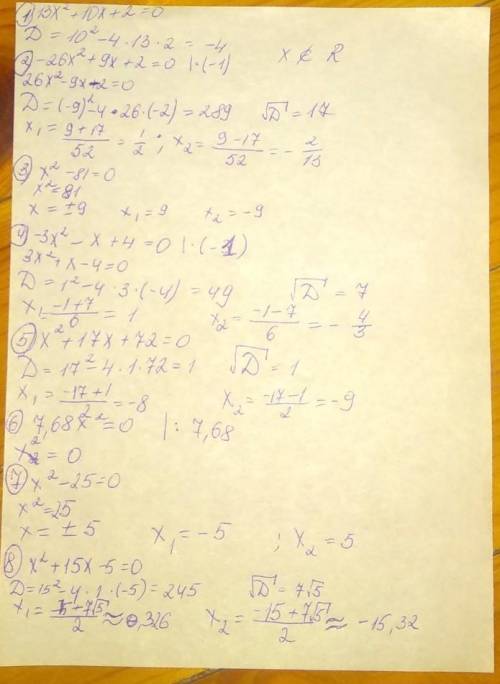 1) 13x² + 10x + 2 = 0
D = 10² - 4 · 13 · 2 = -4
x ∉ R
2) -26x² + 9x + 2 = 0 | · (-1)
26x² - 9x - 2 = 0
D = (-9)² - 4 · 26 · (-2) = 289 √D = 17
x₁ = (9+17)/52 = 1/2 ; x₂ = (9-17)/52 = - 2/13
3) x² - 81 = 0
x² = 81
x = ±9 x₁ = 9 x₂ = -9
4) -3x² - x + 4 = 0 | · (-1)
3x² + x - 4 = 0
D = 1² - 4 · 3 · (-4) = 49 √D = 7
x₁ = (-1+7)/6 = 1 x₂ = (-1-7)/6 = - 4/3
5) x² + 17x + 72 = 0
D = 17² - 4 · 1 · 72 = 1 √D = 1
x₁ = (-17+1)/2 = -8 x₂ = (-17-1)/2 = -9
6) 7,68x² = 0 | : 7,68
x² = 0
7) x² - 25 = 0
x² = 25
x = ± 5 x₁ = -5 ; x₂ = 5
8) x² + 15x - 5 = 0
D = 15² - 4 · 1 · (-5) = 245 √D = 7√5
x₁ = (-15+7√5)/2 ≈ 0,326 x₂ = (-15+7√5)/2 ≈ -15,32